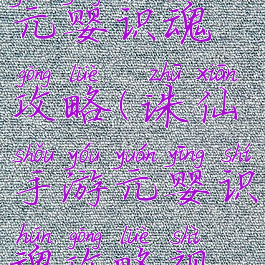 元婴识魂
gōng lüè zhū xiān
攻略(诛仙
shǒu yóu yuán yīng shí
手游元婴识
hún gōng lüè shí
魂攻略视